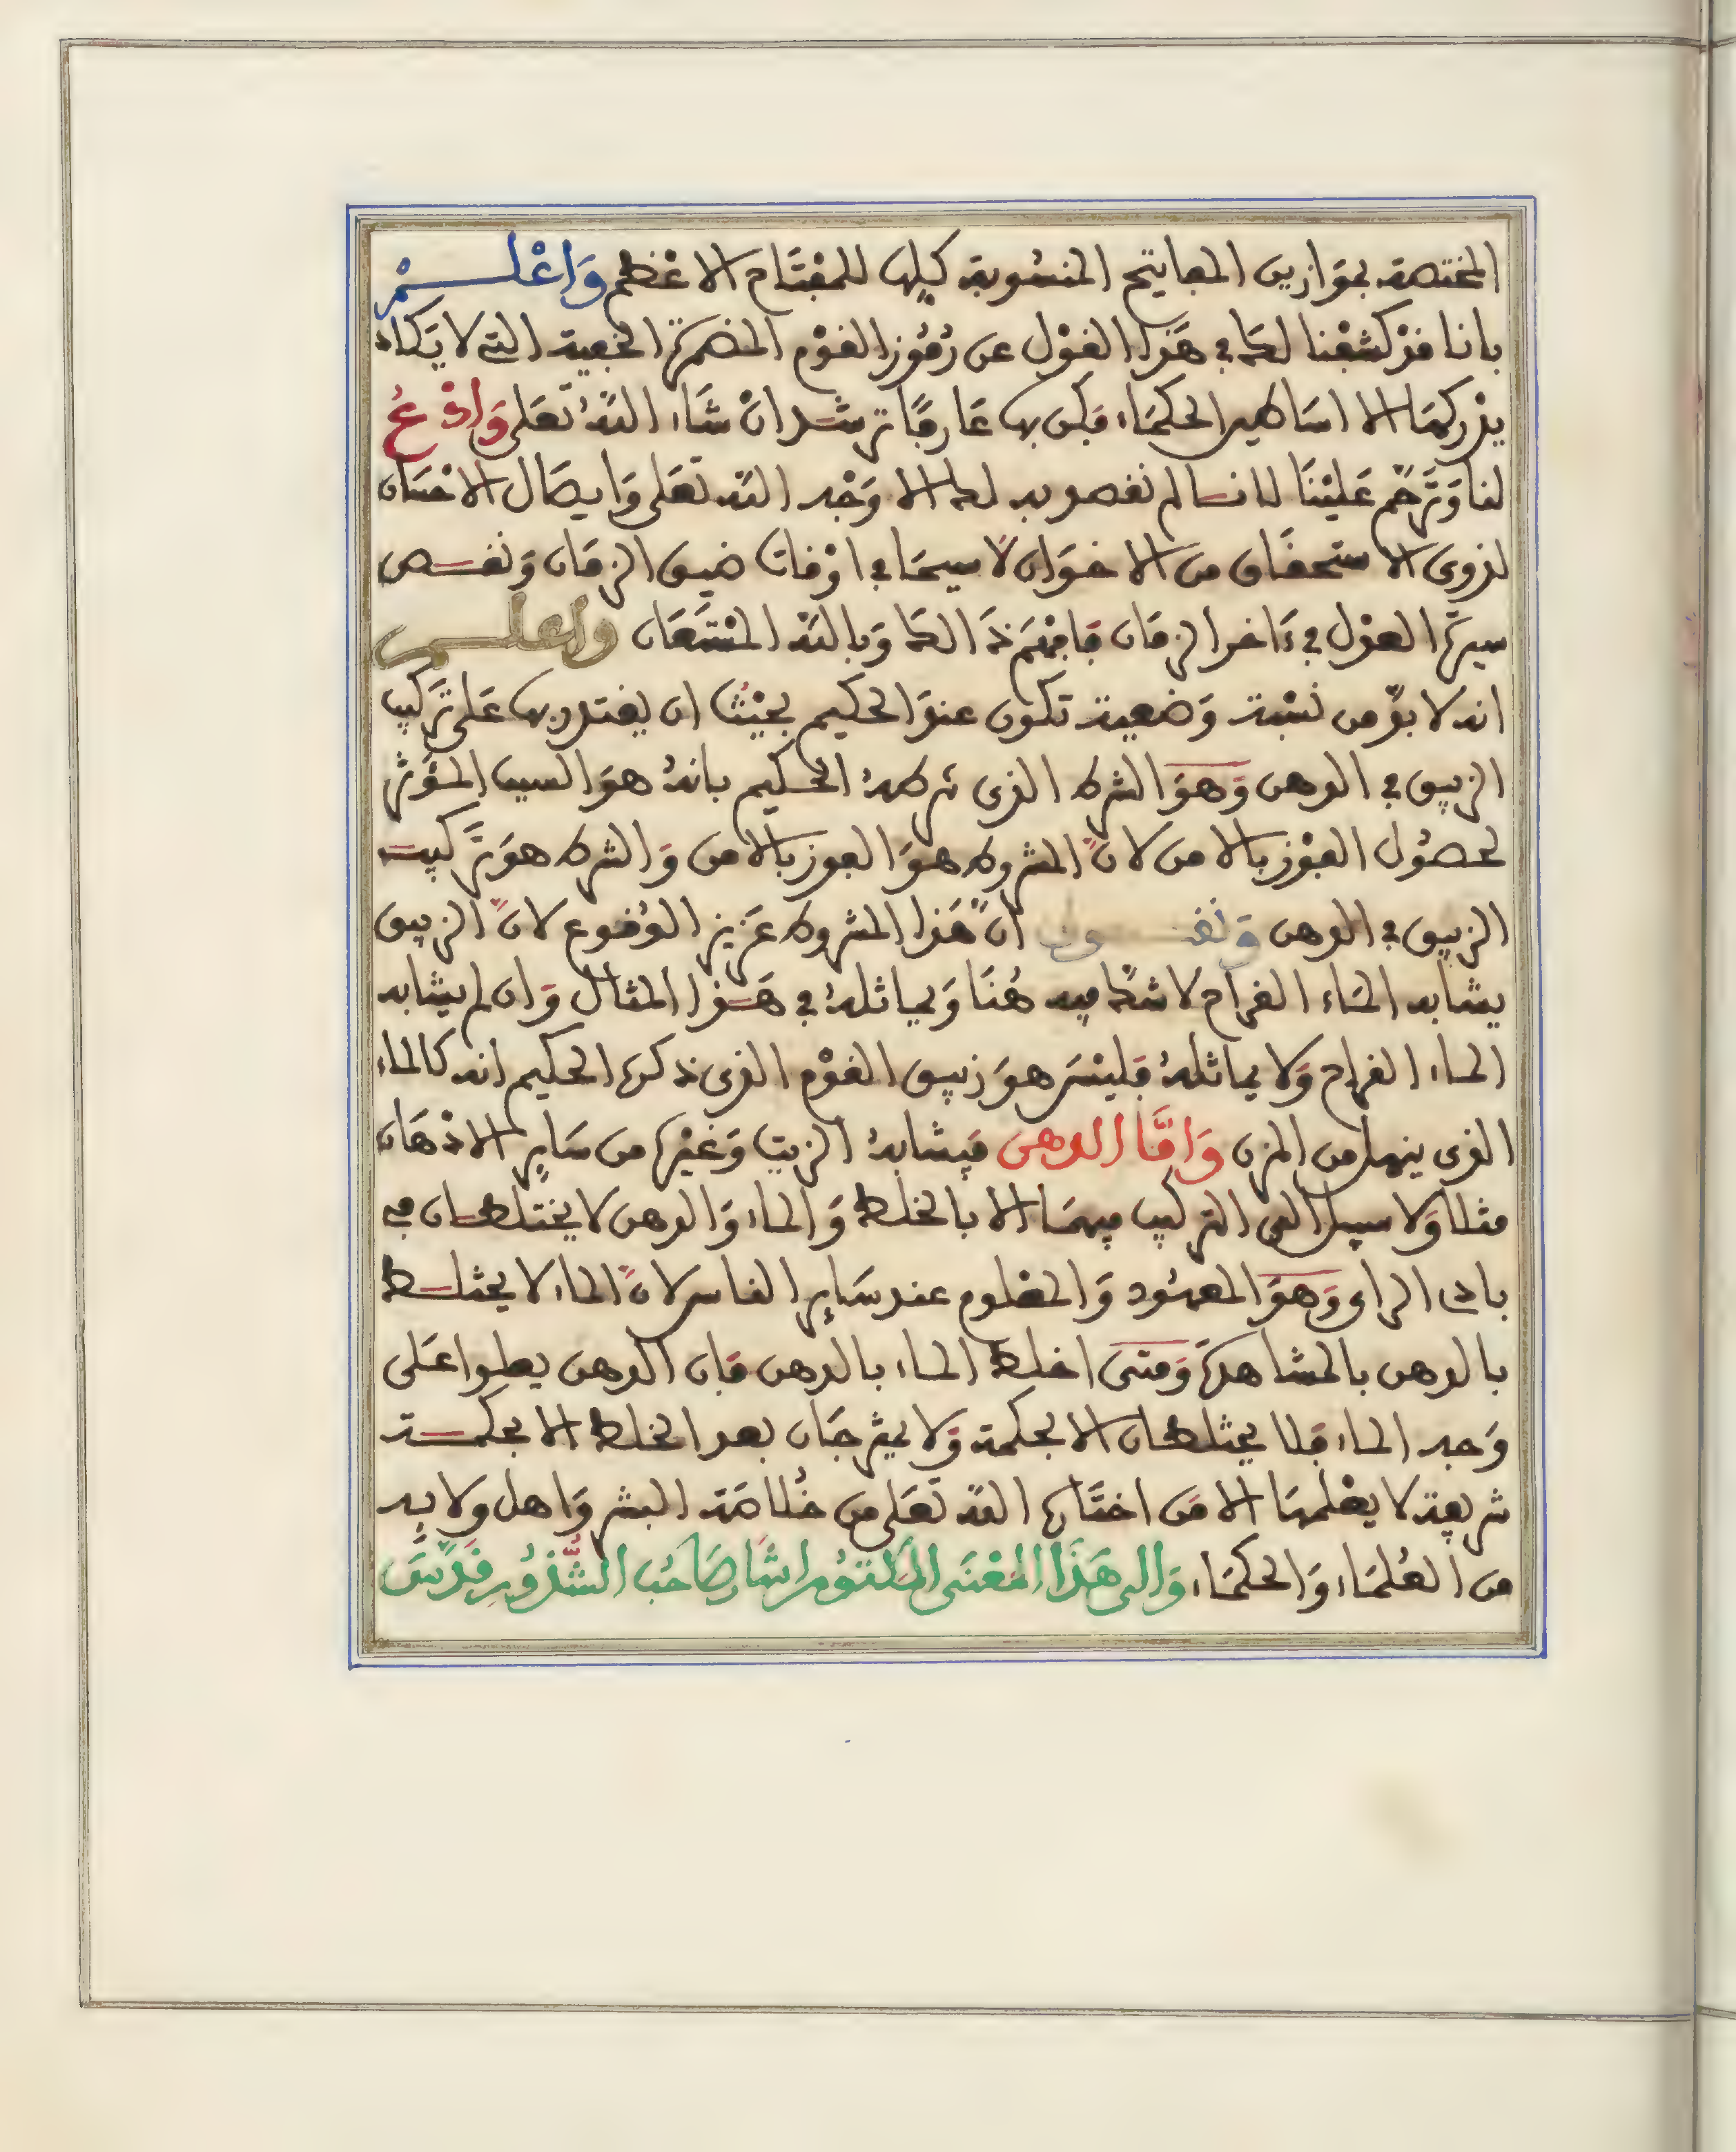 المختصة بموازين المفاتيح المنسوبة كلها للمفتاح الاعظم وَاعْلَمْ
بانا قد كشفنا لك في هَذا القوْل عن رُمُوز القوْم المضمرة الخفية التي لا يَكاد
يدْركهَا الا اساطير الحكمَاء فكن بها عَارفًا ترشد انْ شَاء اللهُ تعَلى وَادْعُ
لنا وَتَرَحَّم عَليْنَا لاننا لم نقصد به لك الا وَجْه الله تعَلى وَايصَال الاحْسَان
لذوي الاستحقَاق من الاخوَان لا سيمَا في اوْقات ضيق الزمَان وَنقص
سيرة العدْل في ءَاخر الزمَان فافهَمْ ذَالك وَبالله المسْتَعَان واعلم
انه لا بدّ من نسْبة وَضعية تكون عندَ الحكيم بحيْثُ ان يقتدر بها عَلى تَركيب
الزيبق في الدهن وَهوَ الشرط الذي شرطهُ الحكيم بانهُ هوَ السبب المؤَثر
لحصُول الفوْز بالامن لانّ المشروط هوَ الفوز بالامن وَالشرط هوَ تَركيب
الزيبق في الدهن وَنقول انّ هَذا المشروط عَزيز الوُقوع لانّ الزيبق
يشابه المَاء القراح لا شكّ فيه هُنَا وَيماثلهُ في هَذا المثال وَان لم يشابه
الماء القراح وَلا يماثلهُ فليْسَ هوَ زيبق القوْم الذي ذكره الحكيم انه كالماء
الذي ينهل من المزن وَامَّا الدهن فيشابهُ الزيت وَغيْره من سَاير الادْهَان
مثلا وَلا سبيل الى التركيب فيهمَا الا بالخلط وَالماء وَالدهن لا يختلطان في
بادي الراي وَهوَ المعهُود وَالمعْلوم عند سَاير الناس لانّ الماء لا يختلط
بالدهن بالمشاهدة وَمتى اخلط الماء بالدهن فان الدهن يطلوا عَلى
وَجه الماء فلا يختلطان الا بحكمة وَلا يفترقَان بعد الخلط الا بحكمة
شريفة لا يعْلمهَا الا مَن اختَاره الله تعَلى من خُلاصَة البشر وَاهل ولايته
من العُلمَاء وَالحكمَاء وَالى هَذَا المعْنَى المكتوُم اشَار صَاحُب الشُّذوُر قدّسَ